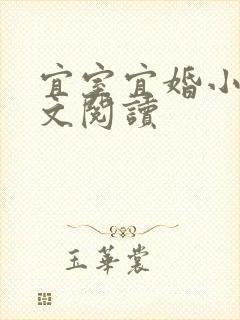 宜室宜婚小
文閱讀
玉華裳